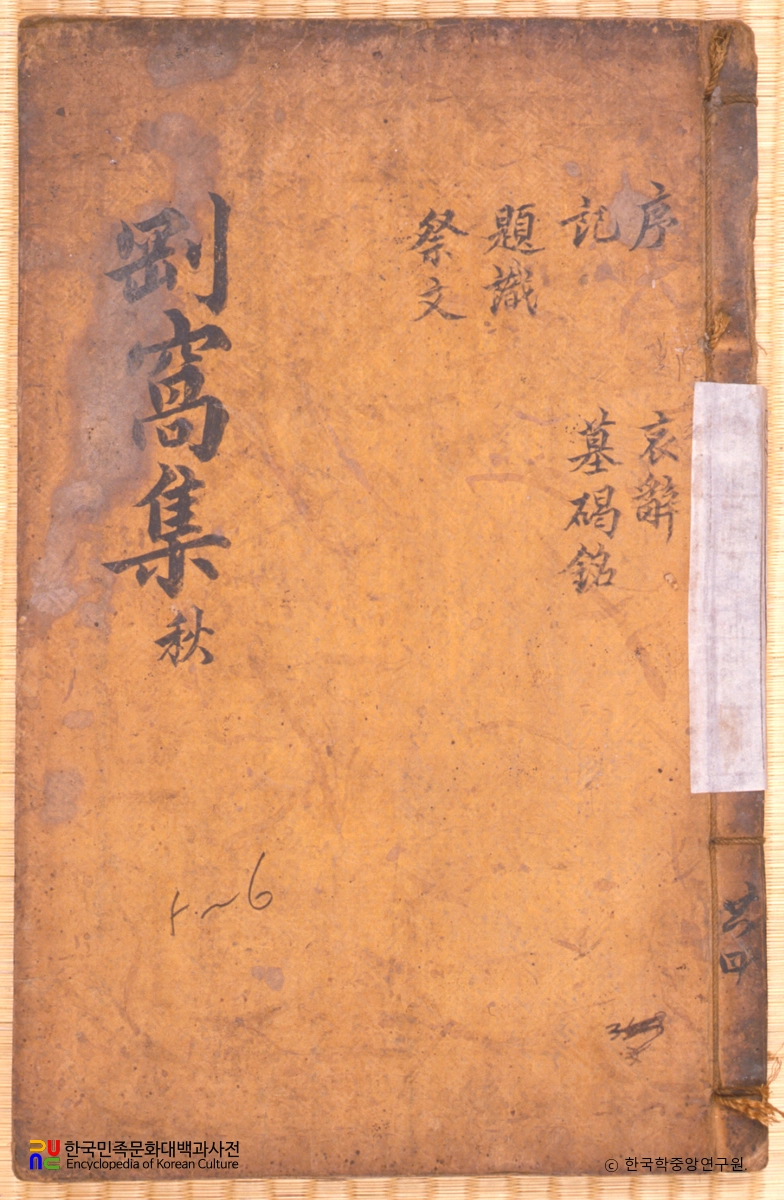 序
記
題識
祭文
哀辭
墓碣銘
剛窩集 秋
共四
한국민족문화대백과사전
Encyclopedia of Korean Culture
© 한국학중앙연구원